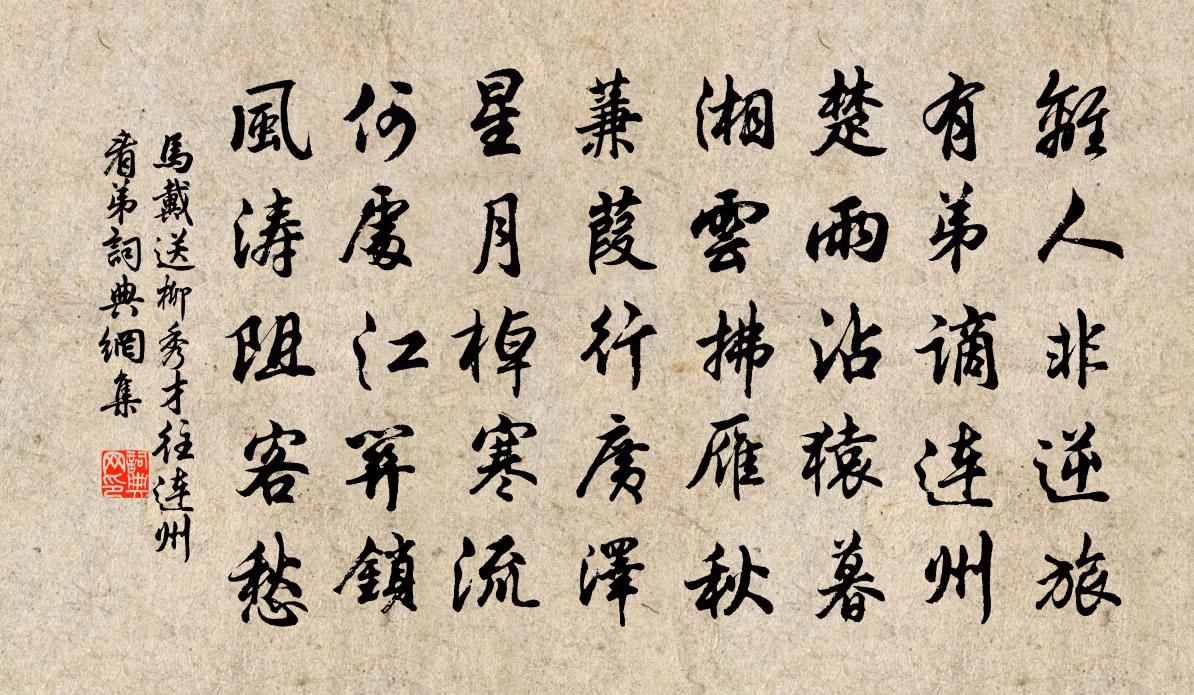 離人非逆旅
有弟謫連州
楚雨沾猿暮
湘雲拂雁秋
蒹葭行廣澤
星月棹寒流
何處江關鎖
風濤阻客愁
馬戴送柳秀才往連州
看弟詞典網集
詞典网印